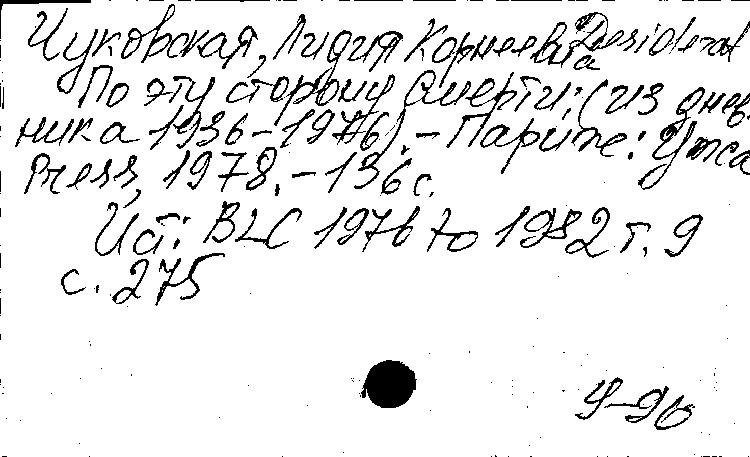 Чуковская, Лидия Корнеевна Desiderat
По эту сторону смерти: (из днев-
ника 1936-1976). - Париж: Ymca
Press, 1978. - 136 с.
Ист: BLC 1976 to 1982 т. 9
с. 275
Ч-96